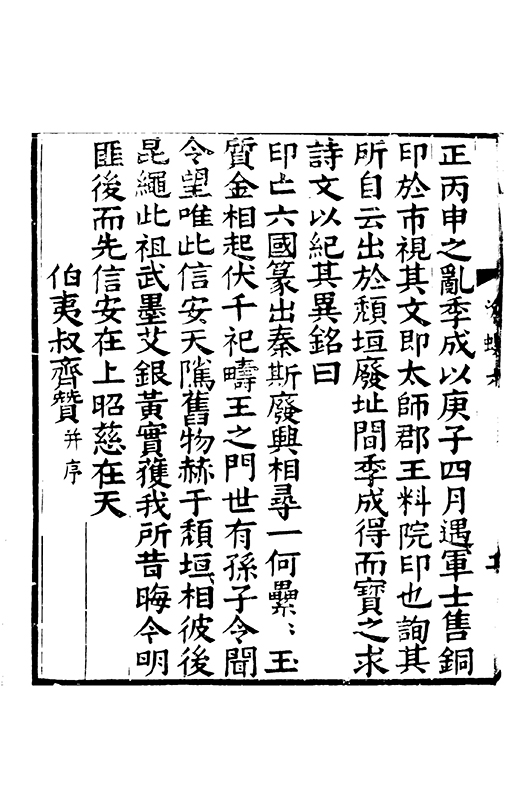 正丙申之亂季成以庚子四月遇軍士售銅
印於市視其文即太師郡王料院印也詢其
所自云出於頹垣廢址間季成得而寶之求
詩文以紀其異銘曰
印亡六國篆出秦斯廢興相尋一何纍〻玉
質金相起伏千祀疇王之門世有孫子令聞
令望唯此信安天隲舊物赫于頹垣相彼後
昆繩此祖武墨艾銀黃實獲我所昔晦今明
匪後而先信安在上昭慈在天
伯夷叔齊贊并序